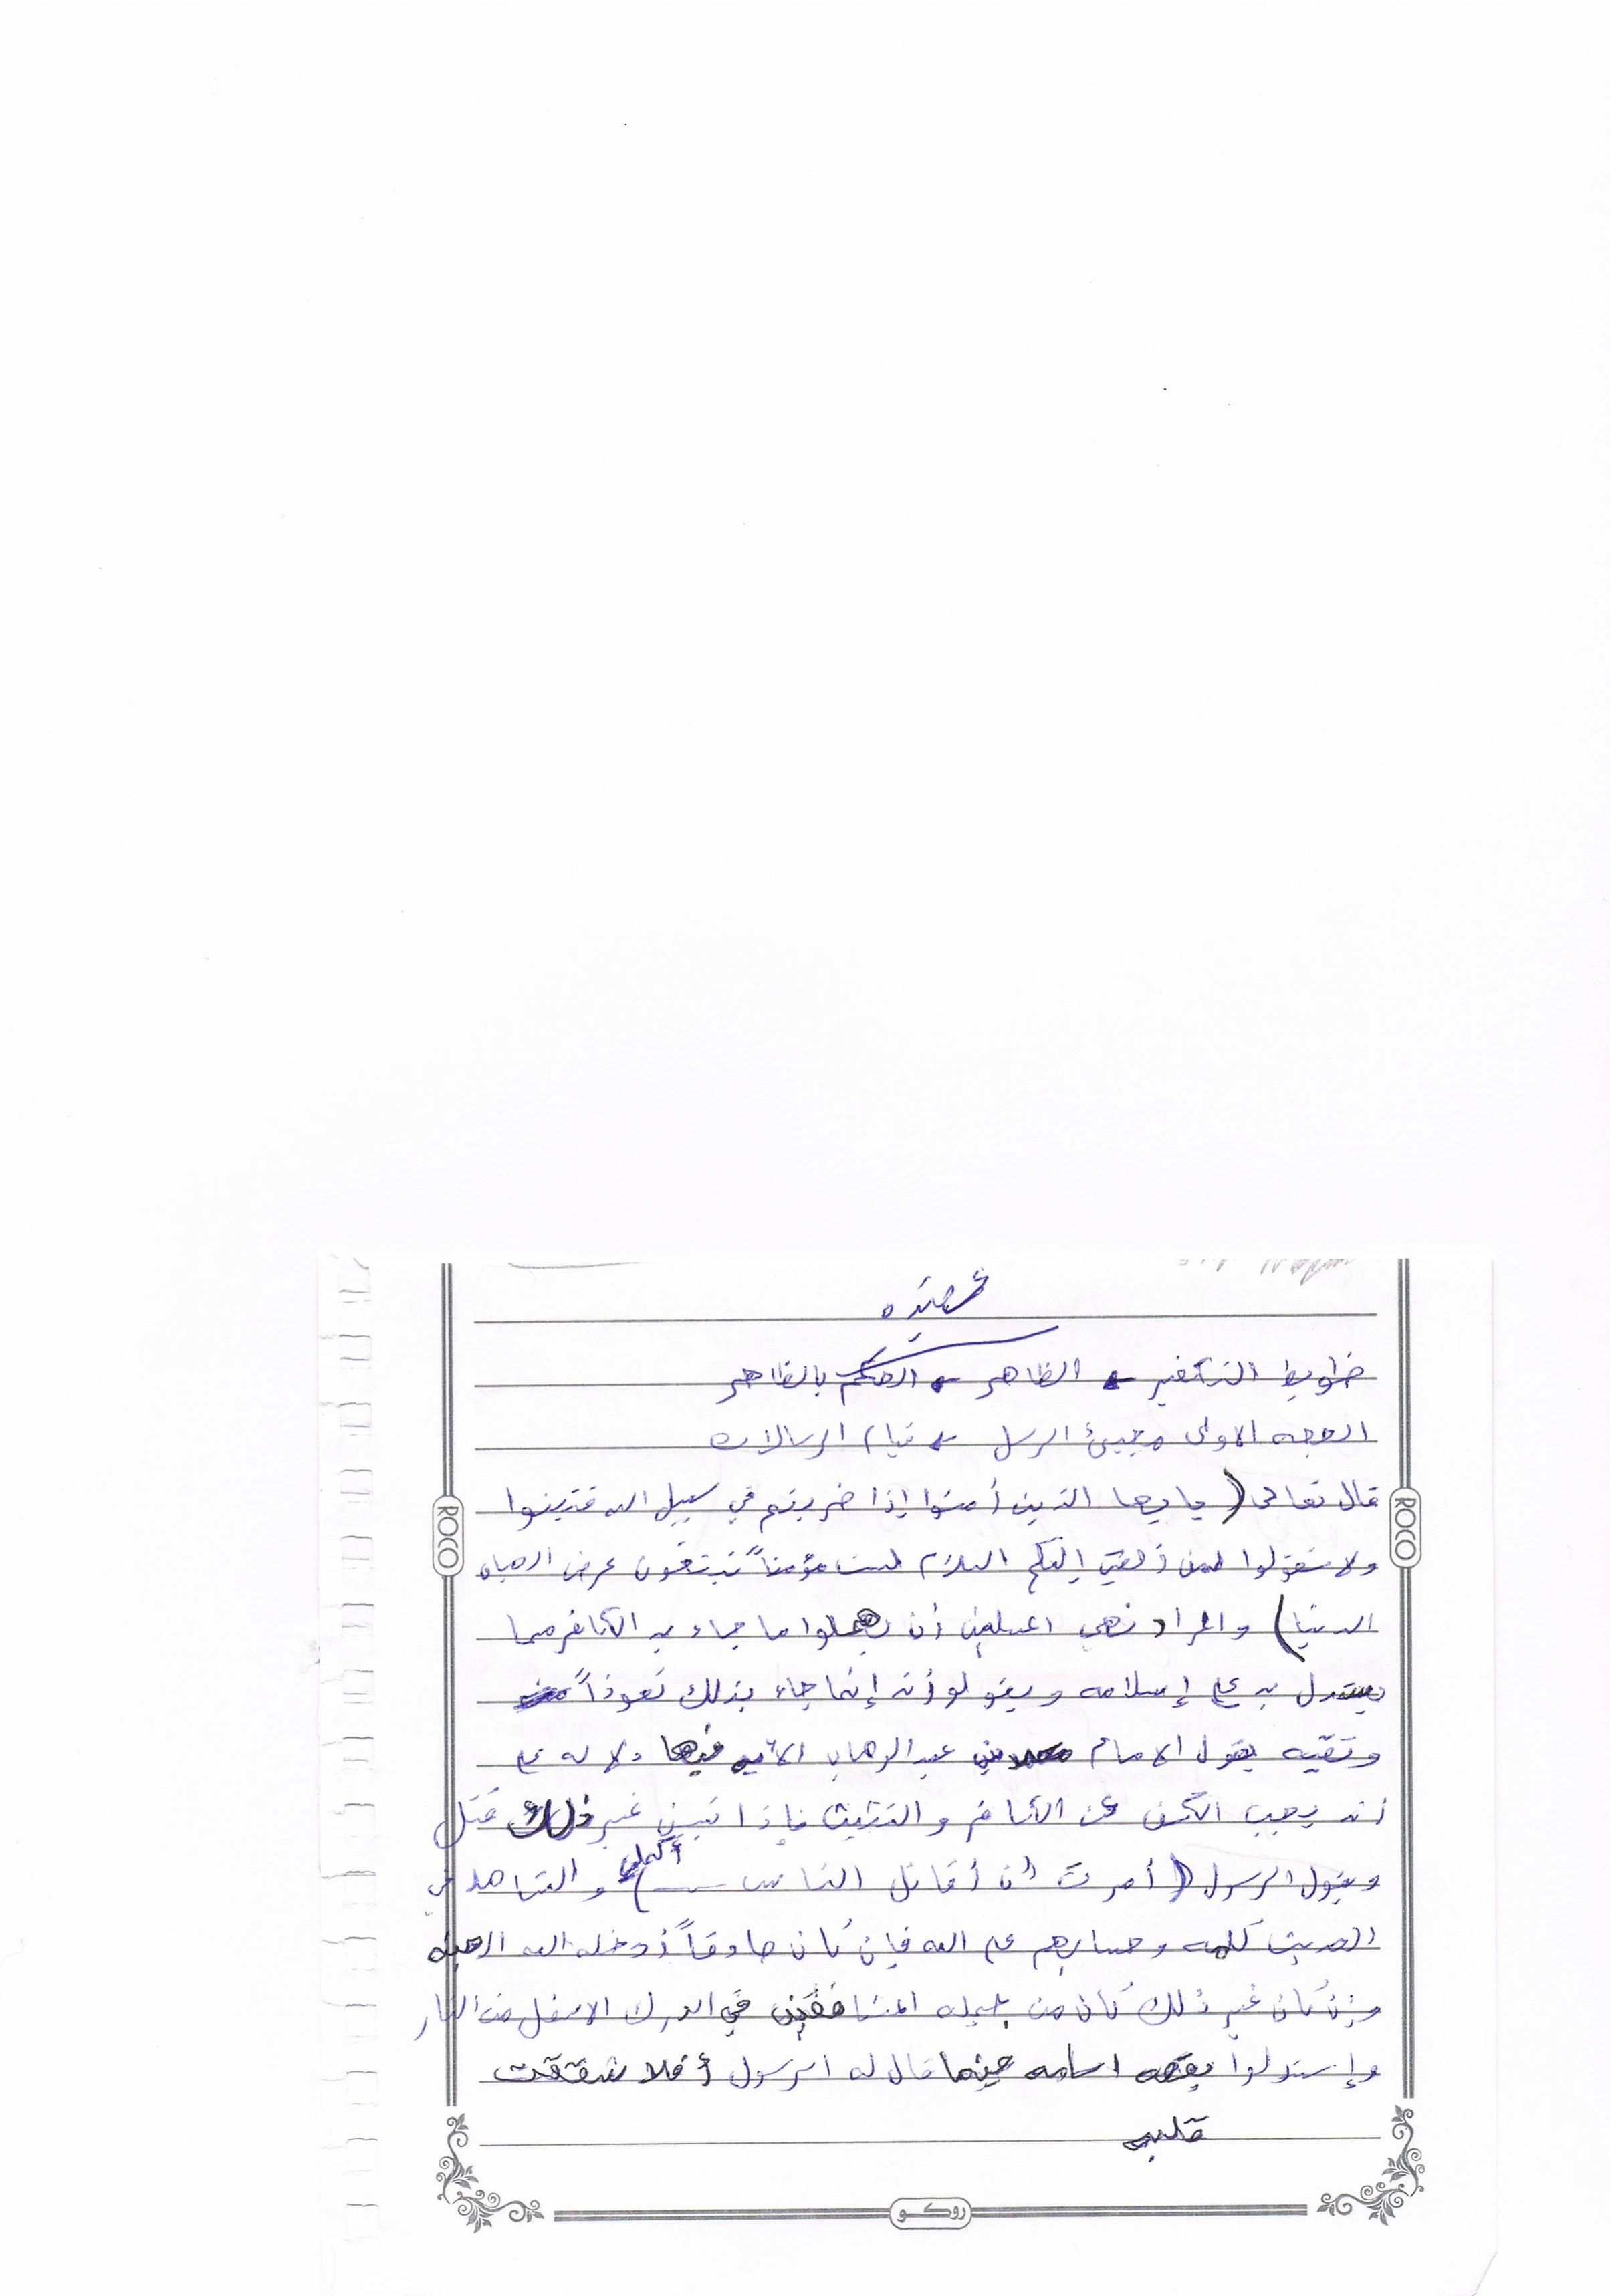 عقيده
ضوابط التكفير - الظاهر - الحكم بالظاهر
الحجه الاولى مجيئ الرسل - قيام الرسالات
قال تعالى ( يا ايها الذين أمنوا إذا ضربتم في سبيل الله فتبينوا
ولا تقولوا لمن ألقى إليكم السلام لست مؤمناً تبتغون عرض الحياه
الدنيا ) والمراد نهي المسلمين أن يهملوا ما جاء به الكافر مما
يستدل به على إسلامه ويقولوا أنه إنما جاء بذلك تعوذاً
وتقيه يقول الامام محمد بن عبد الوهاب الأيه فيها دلاله على
أنه يجب الكف عن الكافر والتثبت فإذا تبين غير ذلك قتل
ويقول الرسول ( أمرت أن أقاتل الناس ــــ ) أكملي والشاهد في
الحديث كلمه وحسابهم على الله فإن كان صادقاً أدخله الله الجنه
وإن كان غير ذلك كان من جمله المنافقين في الدرك الاسفل من النار
وإستدلوا بقصه اسامه حينما قال له الرسول أفلا شققت
قلبه
ROCO
ROCO
روكو